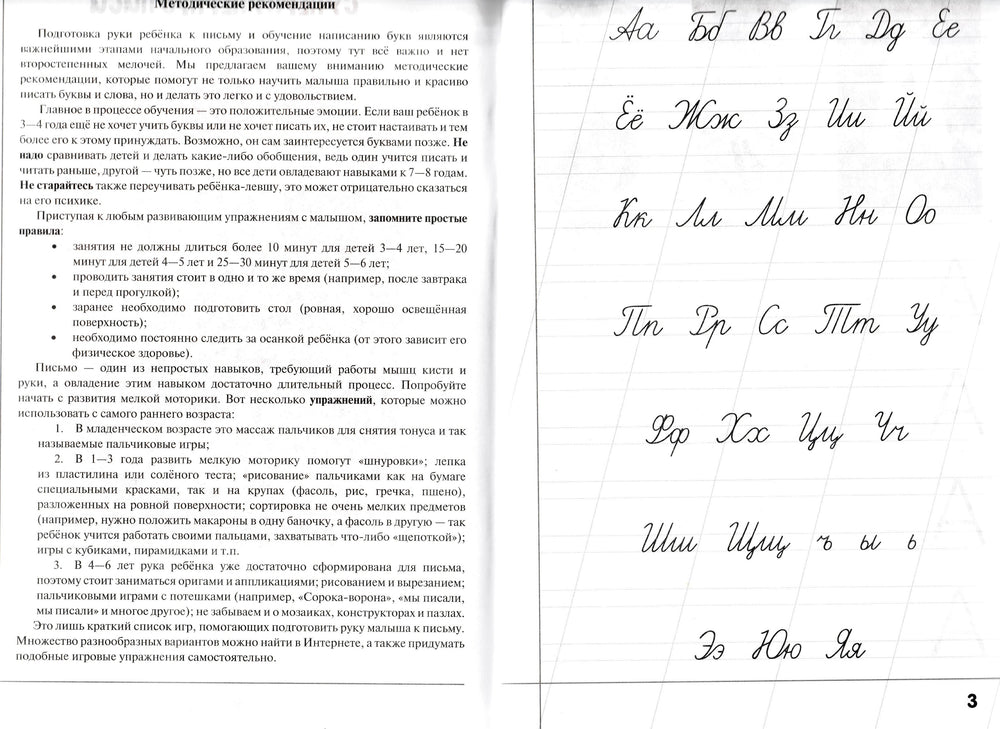 Методические рекомендации
Подготовка руки ребёнка к письму и обучение написанию букв являются
важнейшими этапами начального образования, поэтому тут всё важно и нет
второстепенных мелочей. Мы предлагаем вашему вниманию методические
рекомендации, которые помогут не только научить малыша правильно и красиво
писать буквы и слова, но и делать это легко и с удовольствием.
Главное в процессе обучения — это положительные эмоции. Если ваш ребёнок в
3—4 года ещё не хочет учить буквы или не хочет писать их, не стоит настаивать и тем
более его к этому принуждать. Возможно, он сам заинтересуется буквами позже. Не
надо сравнивать детей и делать какие-либо обобщения, ведь один учится писать и
читать раньше, другой — чуть позже, но все дети овладевают навыками к 7—8 годам.
Не старайтесь также переучивать ребёнка-левшу, это может отрицательно сказаться
на его психике.
Приступая к любым развивающим упражнениям с малышом, запомните простые
правила:
• занятия не должны длиться более 10 минут для детей 3—4 лет, 15—20
минут для детей 4—5 лет и 25—30 минут для детей 5—6 лет;
• проводить занятия стоит в одно и то же время (например, после завтрака
и перед прогулкой);
• заранее необходимо подготовить стол (ровная, хорошо освещённая
поверхность);
• необходимо постоянно следить за осанкой ребёнка (от этого зависит его
физическое здоровье).
Письмо — один из непростых навыков, требующий работы мышц кисти и
руки, а овладение этим навыком достаточно длительный процесс. Попробуйте
начать с развития мелкой моторики. Вот несколько упражнений, которые можно
использовать с самого раннего возраста:
1. В младенческом возрасте это массаж пальчиков для снятия тонуса и так
называемые пальчиковые игры;
2. В 1—3 года развить мелкую моторику помогут «шнуровки»; лепка
из пластилина или солёного теста; «рисование» пальчиками как на бумаге
специальными красками, так и на крупах (фасоль, рис, гречка, пшено),
разложенных на ровной поверхности; сортировка не очень мелких предметов
(например, нужно положить макароны в одну баночку, а фасоль в другую — так
ребёнок учится работать своими пальцами, захватывать что-либо «щепоткой»);
игры с кубиками, пирамидками и т.п.
3. В 4—6 лет рука ребёнка уже достаточно сформирована для письма,
поэтому стоит заниматься оригами и аппликациями; рисованием и вырезанием;
пальчиковыми играми с потешками (например, «Сорока-ворона», «мы писали,
мы писали» и многое другое); не забываем и о мозаиках, конструкторах и пазлах.
Это лишь краткий список игр, помогающих подготовить руку малыша к письму.
Множество разнообразных вариантов можно найти в Интернете, а также придумать
подобные игровые упражнения самостоятельно.
Аа Бб Вв Гг Дд Ее
Ёё Жж Зз Ии Йй
Кк Лл Мм Нн Оо
Пп Рр Сс Тт Уу
Фф Хх Цц Чч
Шш Щщ ъ ы ь
Ээ Юю Яя
3